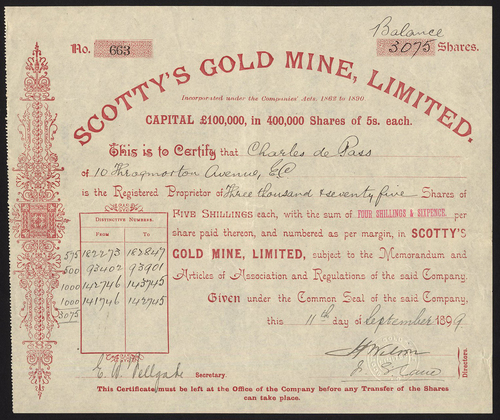 Balance
No. 663 3075 Shares.
SCOTTY'S GOLD MINE, LIMITED.
Incorporated under the Companies' Acts, 1862 to 1890.
CAPITAL £100,000, in 400,000 Shares of 5s. each.
This is to Certify that Charles de Pass
of 10 Throgmorton Avenue, EC
is the Registered Proprietor of Three thousand & seventy five Shares of
FIVE SHILLINGS each, with the sum of FOUR SHILLINGS & SIXPENCE. per
share paid thereon, and numbered as per margin, in SCOTTY'S
GOLD MINE, LIMITED, subject to the Memorandum and
Articles of Association and Regulations of the said Company.
Given under the Common Seal of the said Company,
this 11th day of September 1899
DISTINCTIVE NUMBERS.
FROM TO
575 182273 182847
500 93402 93901
1000 142746 143745
1000 141746 142745
3075
Secretary.
Directors.
This Certificate must be left at the Office of the Company before any Transfer of the Shares
can take place.